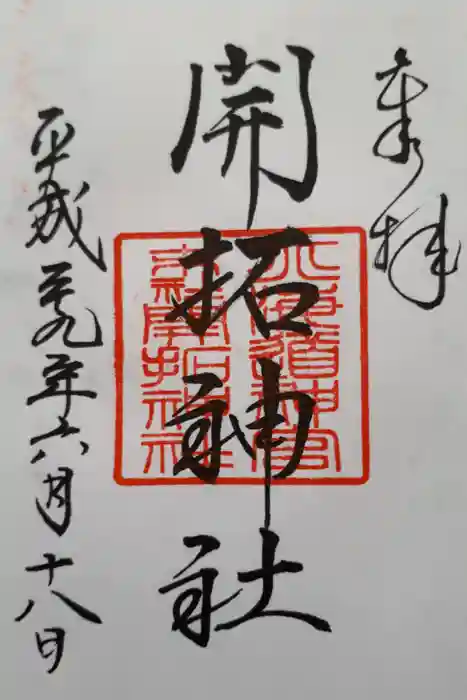 奉拝
開拓神社
平成二十九年六月十八日
北海道神宮
末社開拓神社